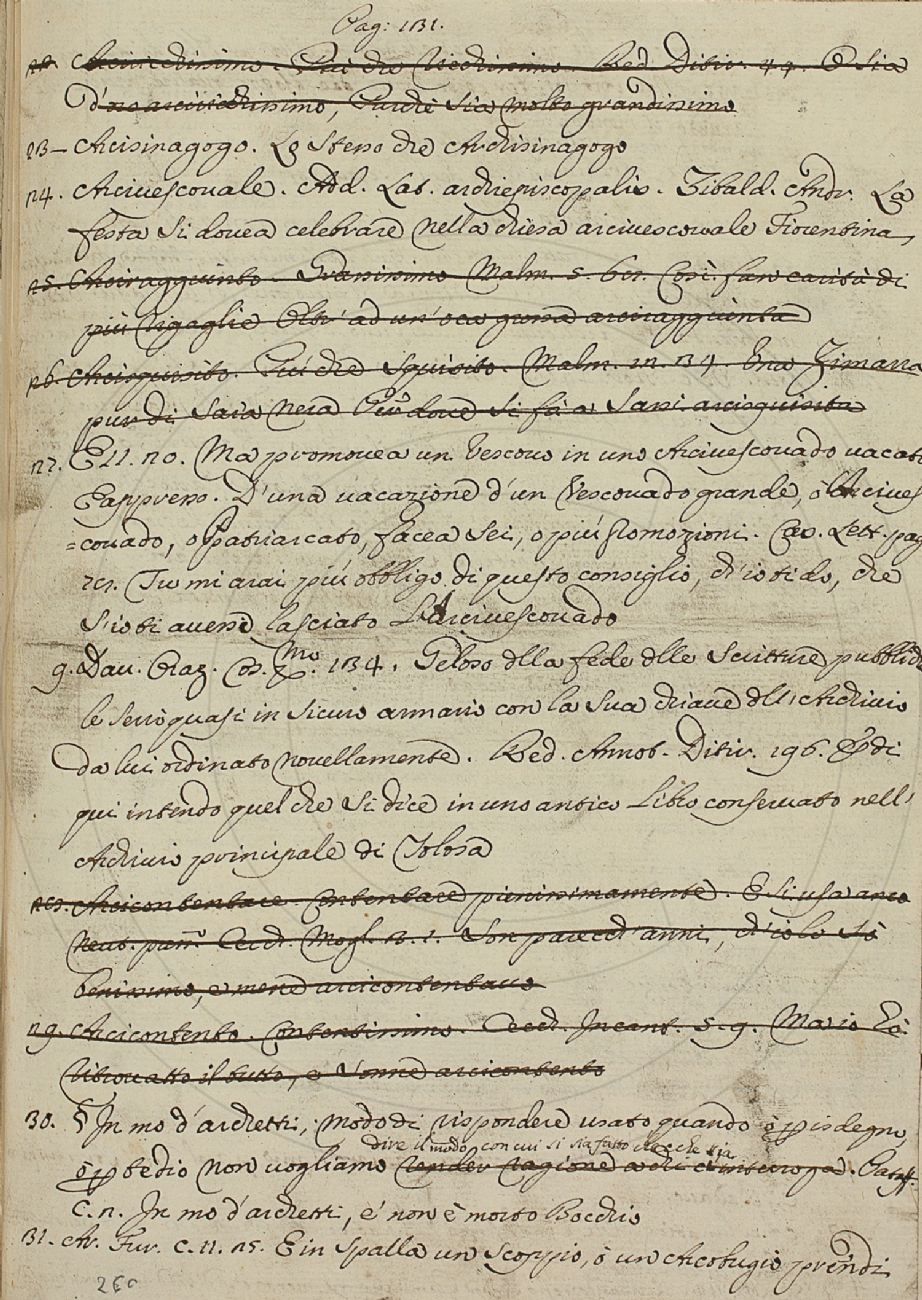 Pag: 131.
22. Arcivecchissimo. Più che Vecchissimo. Red. Ditir. 44. O sia
d'uno arcivecchissimo, Purché sia molto grandissimo
23 — Arcisinagogo. Lo stesso che Archisinagogo
24. Arcivescovale. Add. Lat. archiepiscopalis. Zibald. Andr. La
festa si dovea celebrare nella chiesa arcivescovale Fiorentina,
25. Arciraggiunto. Grassissimo Malm. 5. 61. Così fan carità di
più rigaglie Oltr' ad un' oca grossa arciraggiunta
26. Arcisquisito. Più che Squisito. Malm. 12. 134. Una Zimarra
pur di saia nera Più dove si fa a Sassi arcisquisita
27. E 11. 20. Ma promovea un Vescovo in uno Arcivescovado vacat
E appresso. D'una vacazione d'un Vescovado grande, ò Arcives
=covado, o Patriarcato, facea sei, o più promozioni. Cav. Lett. pag
21. Tu mi arai più obbligo di questo consiglio, ch'io ti do, che
s'io ti avessi lasciato L'Arcivescovado
g. Dav. Oraz. Cos. Pmo. 134. Geloso dlla fede dlle Scritture pubblich
le serrò quasi in sicuro armario con la sua chiave dll'Archivio
da lui ordinato novellamente. Red. Annot. Ditir. 196. E di
qui intendo quel che si dice in uno antico Libro conservato nell'
Archivio principale di Tolosa
28. Arcicontentare. Contentare pienissimamente. E si usa anco
Neut. pass. Cecch. Mogl. 2. 1. Son parecch' anni, ch'io lo so
benissimo, e mene arcicontentavo
29. Arcicontento. Contentissimo. Cecch. Incant. 5. 9. Mario hà
ritrovatto il tutto, e Vonne arcicontento
30. § In mo d'archetti, modo di rispondere usato quando ò p isdegno,
dire il modo con cui si sia fatto che che sia
ò p tedio non vogliamo render ragione a chi c'interroga. Pataff.
C. 2. In mo d'archetti, e' non è morto Bocchio
31. Ar. Fur. C. 11. 25. E in spalla un scoppio, ò un Arcobugio prendi
260